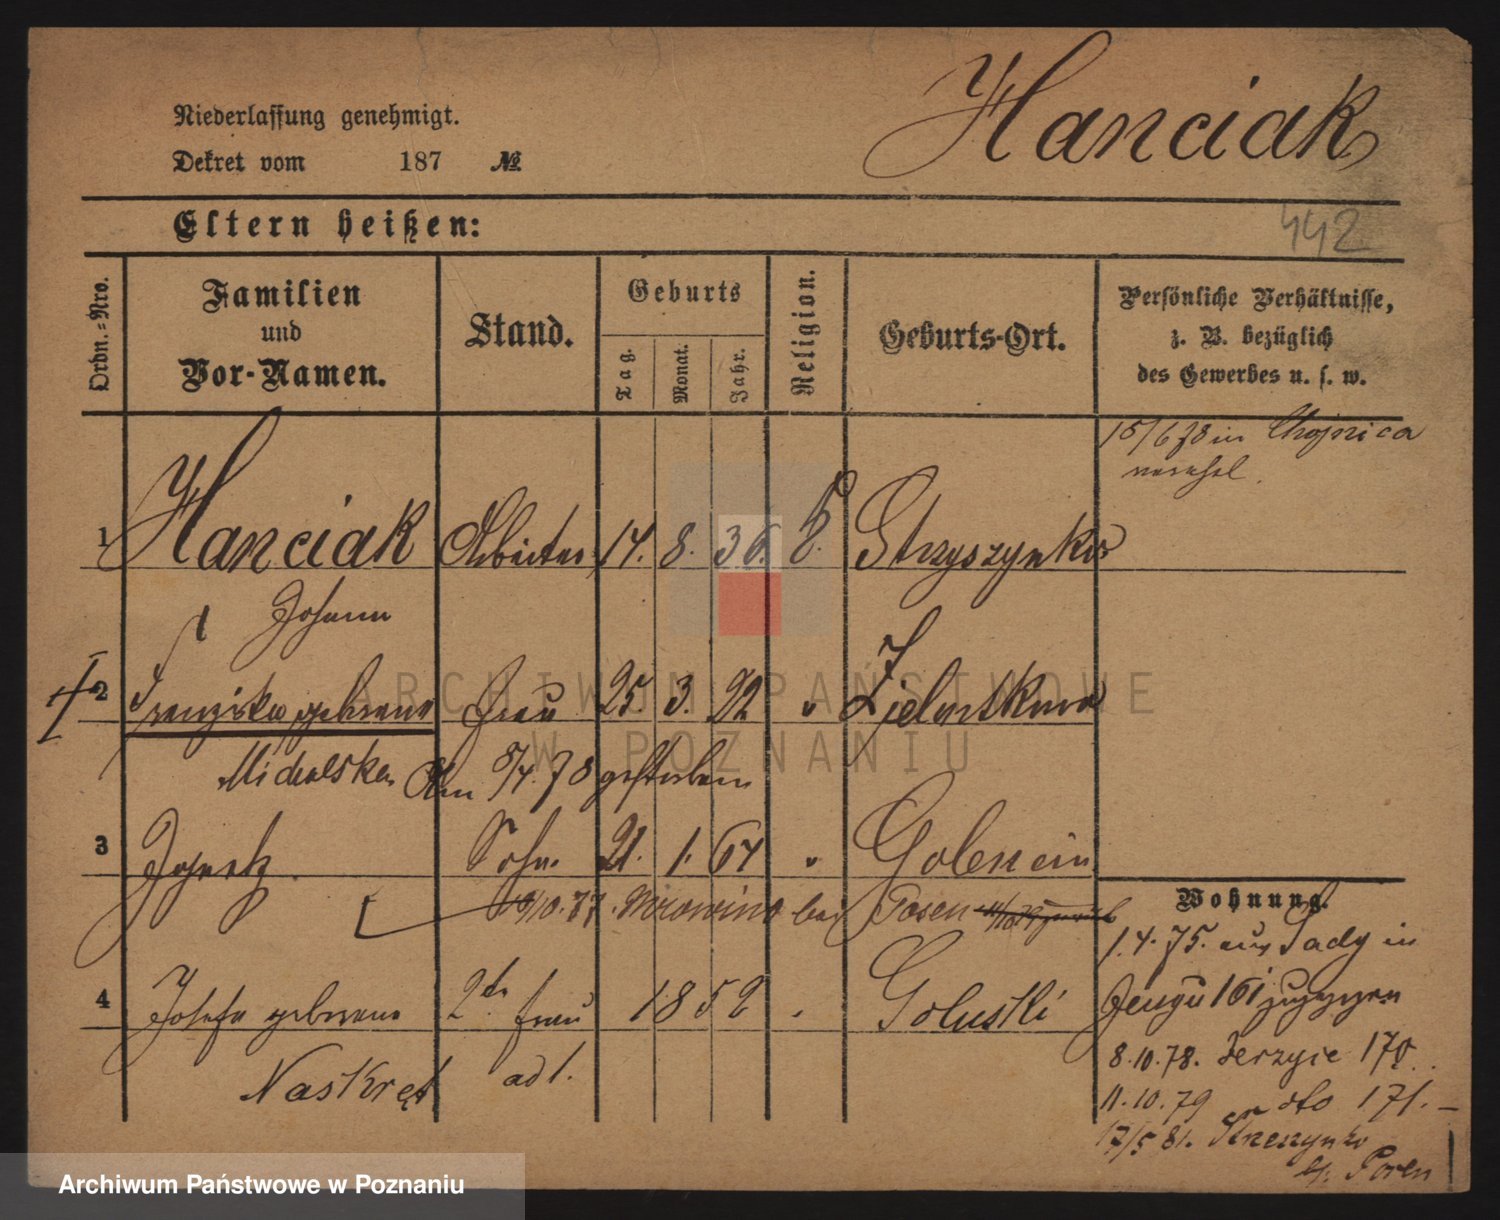 Hanciak
Niederlassung genehmigt.
Dekret vom 187 №
442
Eltern heißen:
Ordn.-Nro.
Familien und Vor-Namen.
Stand.
Geburts
Tag. Monat. Jahr.
Religion.
Geburts-Ort.
Persönliche Verhältnisse,
z. B. bezüglich
des Gewerbes u. s. w.
15/6 78 in Chojnica
1 Hanciak Arbeiter 14. 8. 36. Strzyszynko
Johann
2 Franziska geborene Frau 25 3. 92
Michalska Am 8/4. 78 gestorben
3 Sohn. 21. 1. 64 " Golencin
10. 77. Mrowino bei Posen
Wohnung.
1.4.75. aus Sady in
161 zugezogen
4 Josefa geborene 2te Frau 1852 Goluski
Naskręt ad 1.
8.10.78. Jerzyce 170.
11.10.79 dto 171.
17/5 81. Strzeszynko
b/ Posen
ARCHIWUM PAŃSTWOWE
W POZNANIU
Archiwum Państwowe w Poznaniu